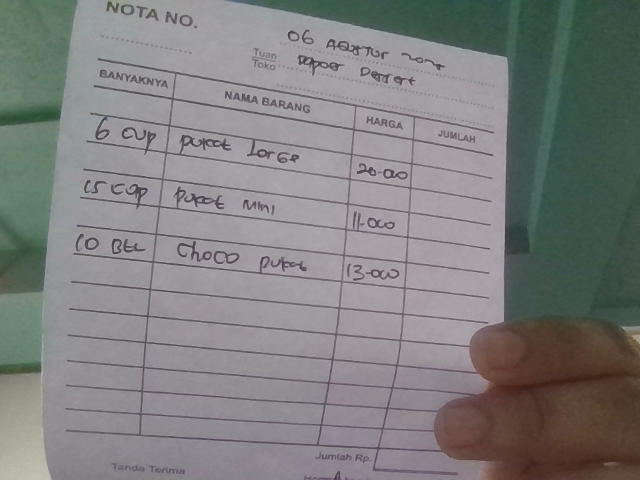 NOTA NO.
06 AGUSTUS
Tuan
Toko
BANYAKNYA NAMA BARANG HARGA JUMLAH
6 cup pukat Large 20.000
15 cup pukat mini 11.000
10 Btl choco pukat 13.000
Jumlah Rp.
Tanda Terima